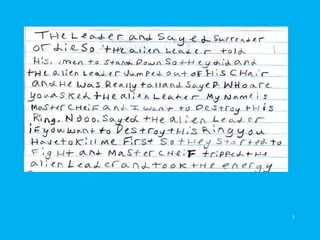 THe Leader and Sayed Surrender
or die So THe alien Leader told
His men to stand Down So tHey did and
THe alien Leader Jumped out of His CHair
and He was Really tall and Sayed WHo are
you asked THe alien Leater My Name is
Master CHeif and I want to Destroy THis
Ring. Nooo. Sayed tHe alien Leader
if you want to Destroy this Ring you
Have to Kill me First So they Started to
Fight and Master CHeif tripped tHe
alien Leader and took the energy